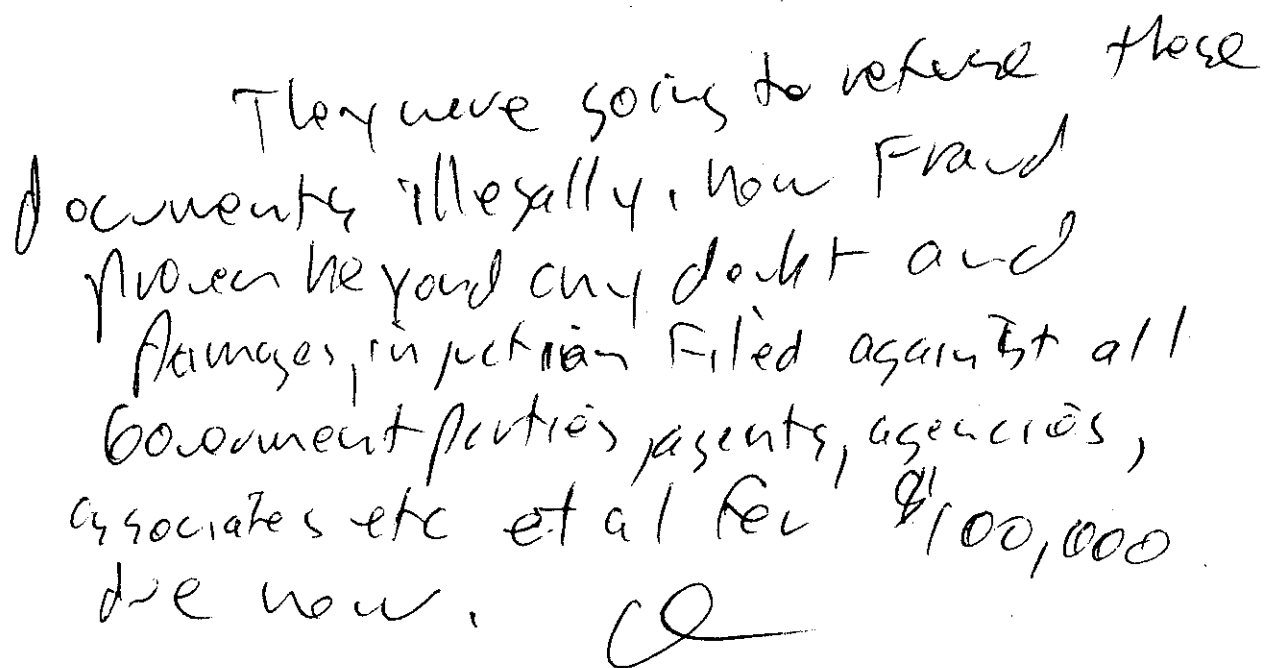 They were going to refuse these
documents illegally, now Fraud
proven beyond any doubt and
Damages, injunction Filed against all
Government parties, agents, agencies,
associates etc et al for $100,000
due now.